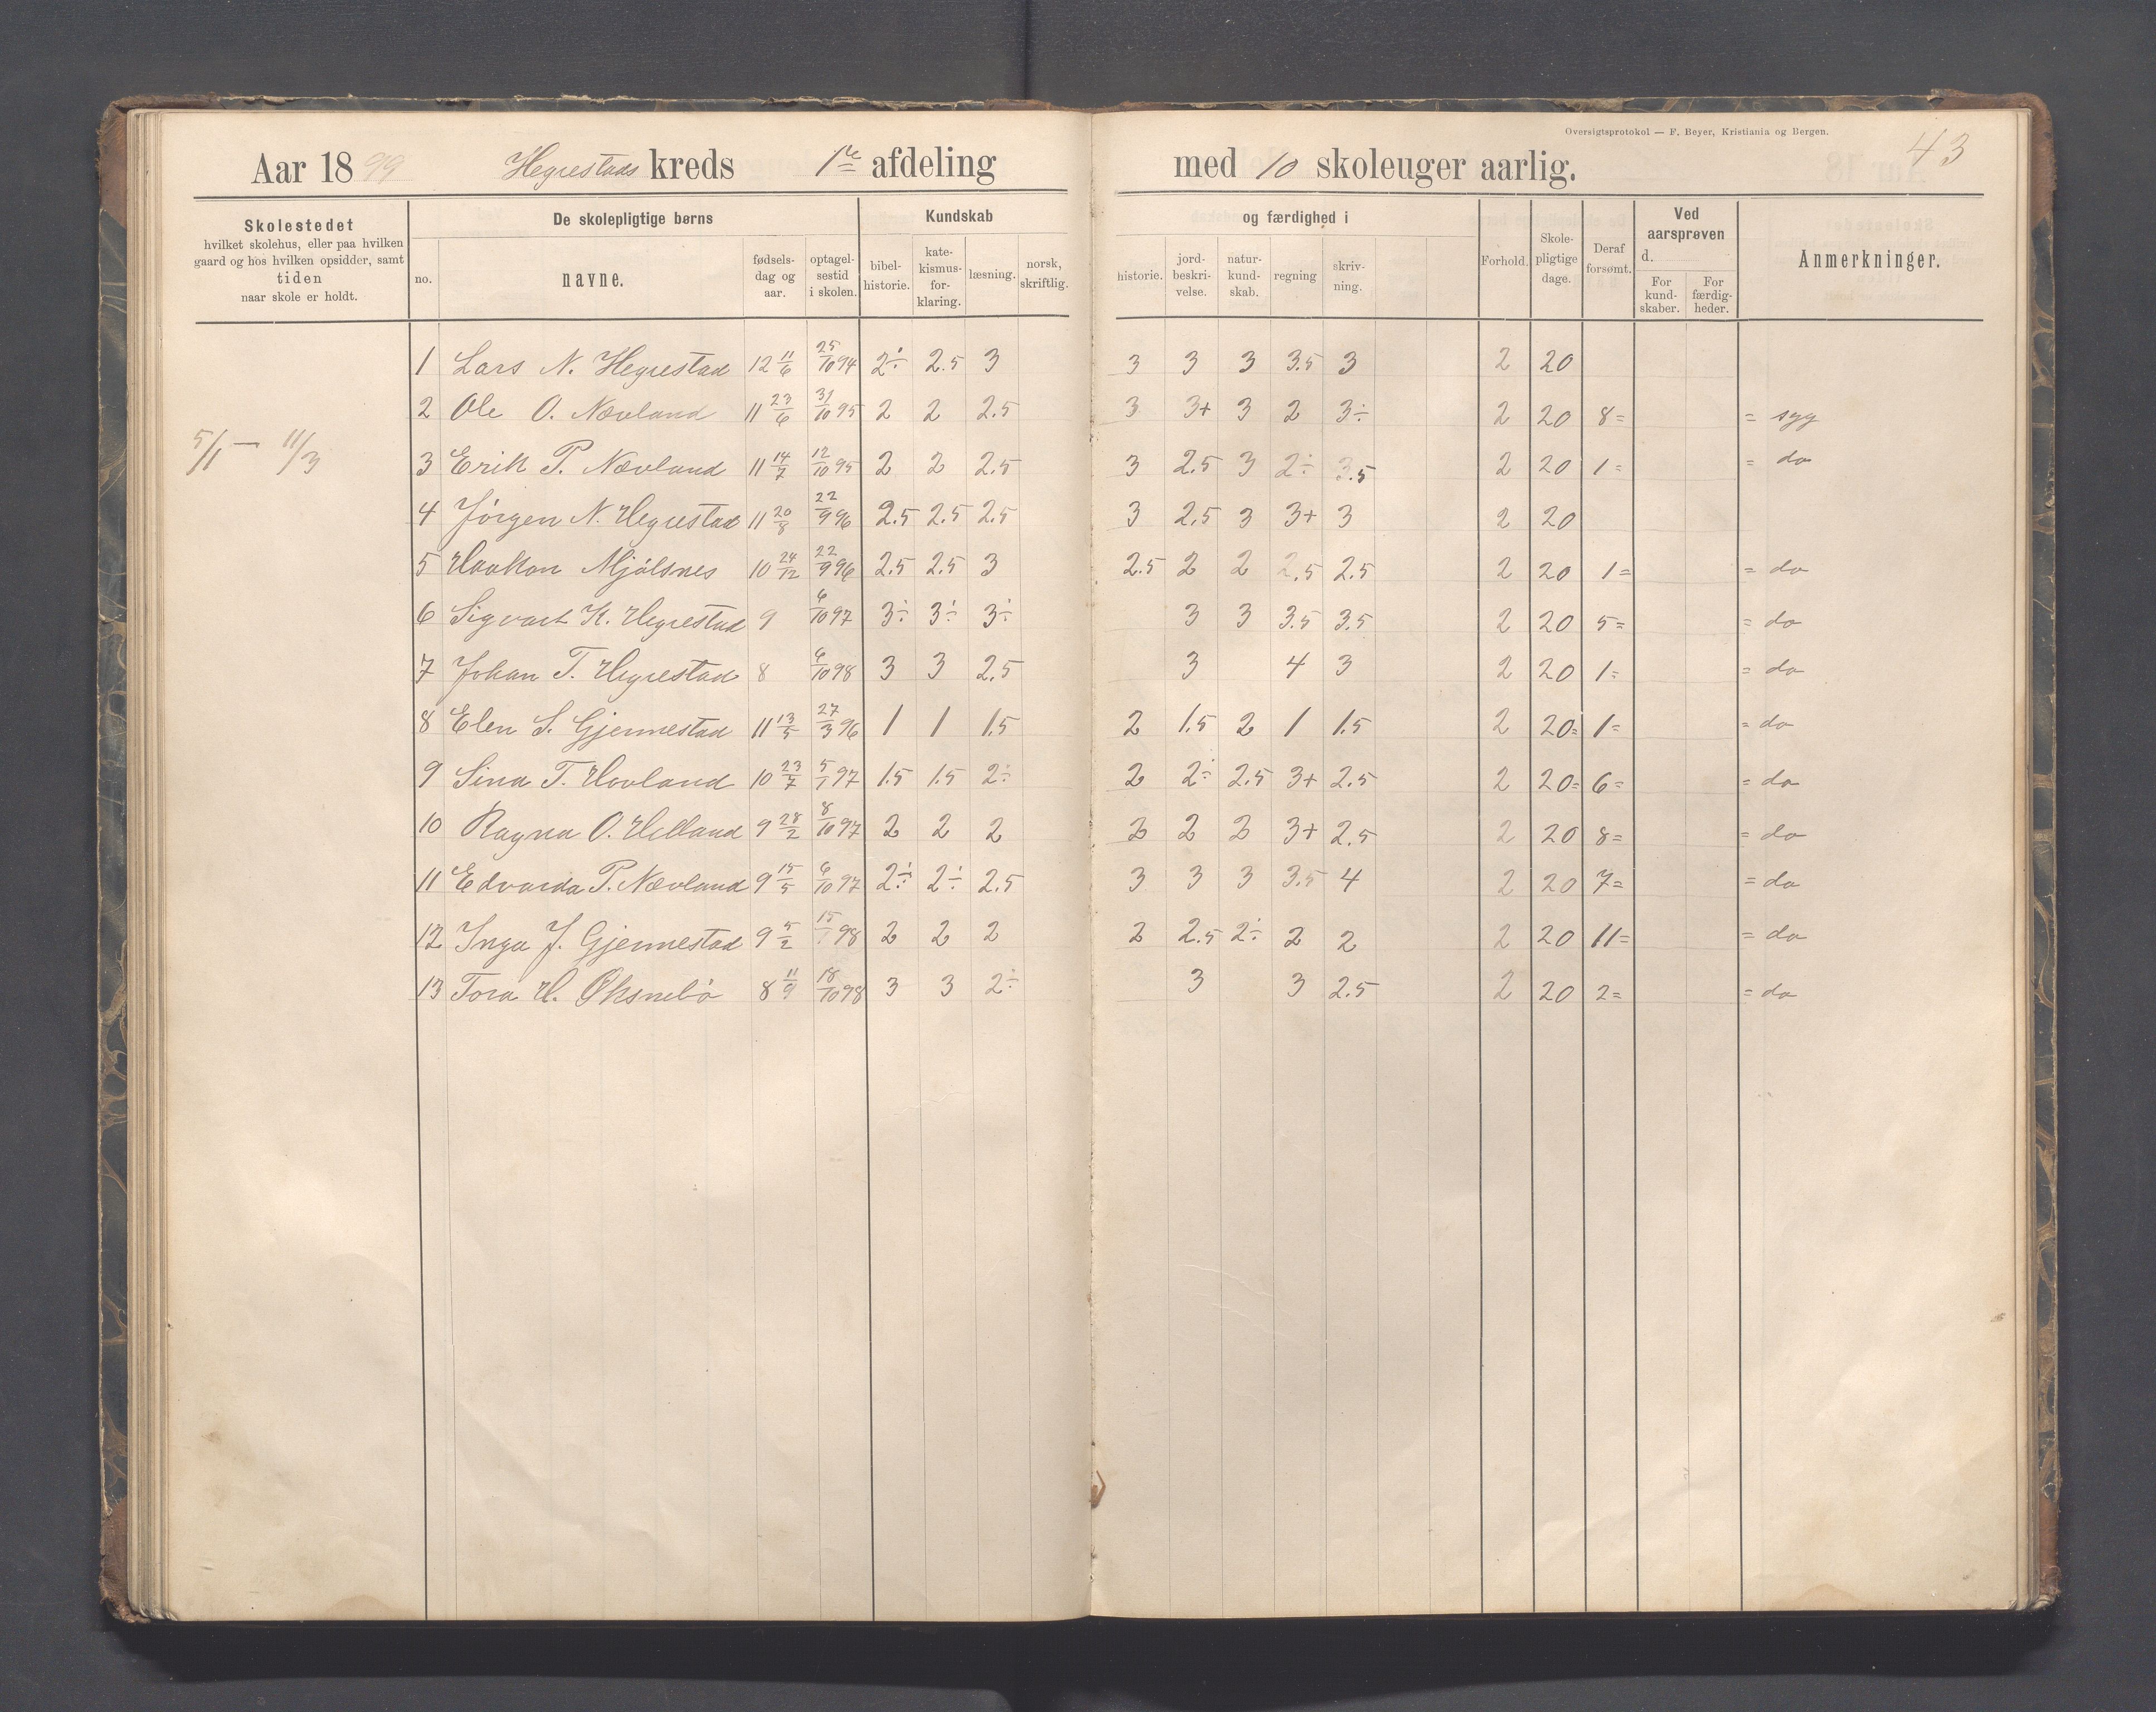 Oversigtsprotokol — F. Beyer, Kristiania og Bergen.
43
Aar 1899 Hegrestads kreds 1ste afdeling med 10 skoleuger aarlig.
Skolestedet
hvilket skolehus, eller paa hvilken
gaard og hos hvilken opsidder, samt
tiden
naar skole er holdt.
De skolepligtige børns
no.
navne.
fødsels-
dag og
aar.
optagel-
sestid
i skolen.
Kundskab
bibel-
historie.
kate-
kismus-
for-
klaring.
læsning.
norsk,
skriftlig.
og færdighed i
historie.
jord-
beskri-
velse.
natur-
kund-
skab.
regning
skriv-
ning.
Forhold.
Skole-
pligtige
dage.
Deraf
forsømt.
Ved
aarsprøven
d.
For
kund-
skaber.
For
færdig-
heder.
Anmerkninger.
5/1 — 11/3
1 Lars N. Hegrestad 12 11/6 25/10 94 2÷ 2.5 3 3 3 3 3.5 3 2 20
2 Ole O. Nævland 11 23/6 31/10 95 2 2 2.5 3 3+ 3 2 3÷ 2 20 8= = syg
3 Erik P. Nævland 11 14/7 12/10 95 2 2 2.5 3 2.5 3 2÷ 3.5 2 20 1= = do
4 Jörgen N. Hegrestad 11 20/8 22/9 96 2.5 2.5 2.5 3 2.5 3 3+ 3 2 20
5 Haakon Mjölsnes 10 24/12 22/9 96 2.5 2.5 3 2.5 2 2 2.5 2.5 2 20 1= = do
6 Sigvart K. Hegrestad 9 6/10 97 3÷ 3÷ 3÷ 3 3 3.5 3.5 2 20 5= = do
7 Johan T. Hegrestad 8 6/10 98 3 3 2.5 3 4 3 2 20 1= = do
8 Elen S. Gjermestad 11 13/5 27/3 96 1 1 1.5 2 1.5 2 1 1.5 2 20= 1= = do
9 Sina T. Hovland 10 23/7 5/1 97 1.5 1.5 2÷ 2 2÷ 2.5 3+ 2.5 2 20= 6= = do
10 Ragna O. Helland 9 28/2 8/10 97 2 2 2 2 2 2 3+ 2.5 2 20 8= = do
11 Edvarda P. Nævland 9 15/5 6/10 97 2÷ 2÷ 2.5 3 3 3 3.5 4 2 20 7= = do
12 Inga J. Gjermestad 9 5/2 15/1 98 2 2 2 2 2.5 2÷ 2 2 2 20 11= = do
13 Tora H. Øksnebö 8 11/9 18/10 98 3 3 2÷ 3 3 2.5 2 20 2= = do